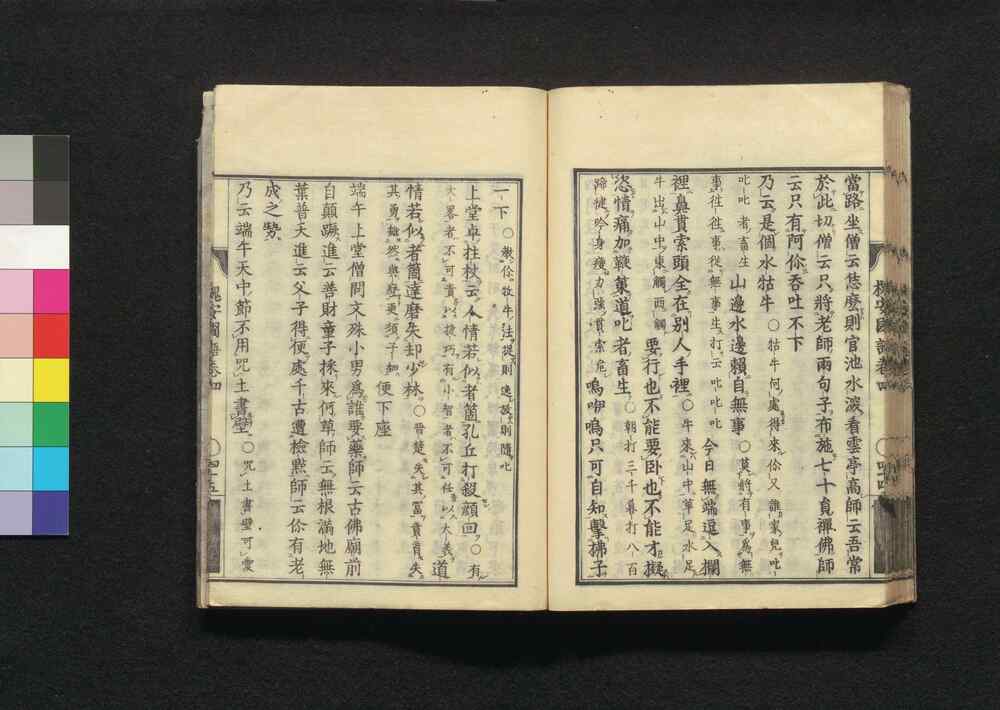 當路坐僧云恁麽則官池水深看雲亭高師云吾常
於此切僧云只將老師兩句子布施七十員禪佛師
云只有阿你吞吐不下
乃云是個水牯牛 ○牯牛何處得來你又誰家兒叱
叱叱者畜生 山邊水邊賴自無事○莫將有事爲無
事往往事從無事生打云叱叱叱 今日無端逗入欄
裡鼻貫索頭全在別人手裡○牛來山中草足水足
牛出山中東觸西觸 要行也不能要臥也不能才擬
恣情痛加鞭箠道叱者畜生○朝打三千暮打八百
蹄健吟身瘦力強貫索危 嗚咿嗚只可自知擊拂子
一下 ○教你牧牛法提則逸放則隨叱
上堂卓拄杖云人情若似者箇孔丘打殺顏回○有
大畧者不可責以捷巧有小智者不可任以大義 道
情若似者箇達磨失却少林○晉楚失其富賁育失
其勇雖然與麽更須子知 便下座
端午上堂僧問文殊小男爲誰要藥師云古佛廟前
自顛蹶進云善財童子採來何草師云無根滿地無
葉普天進云父子得便處千古遭檢點師云你有老
成之勢
乃云端午天中節不用咒土書壁○咒土書壁可實
槐安國語卷四
四十五